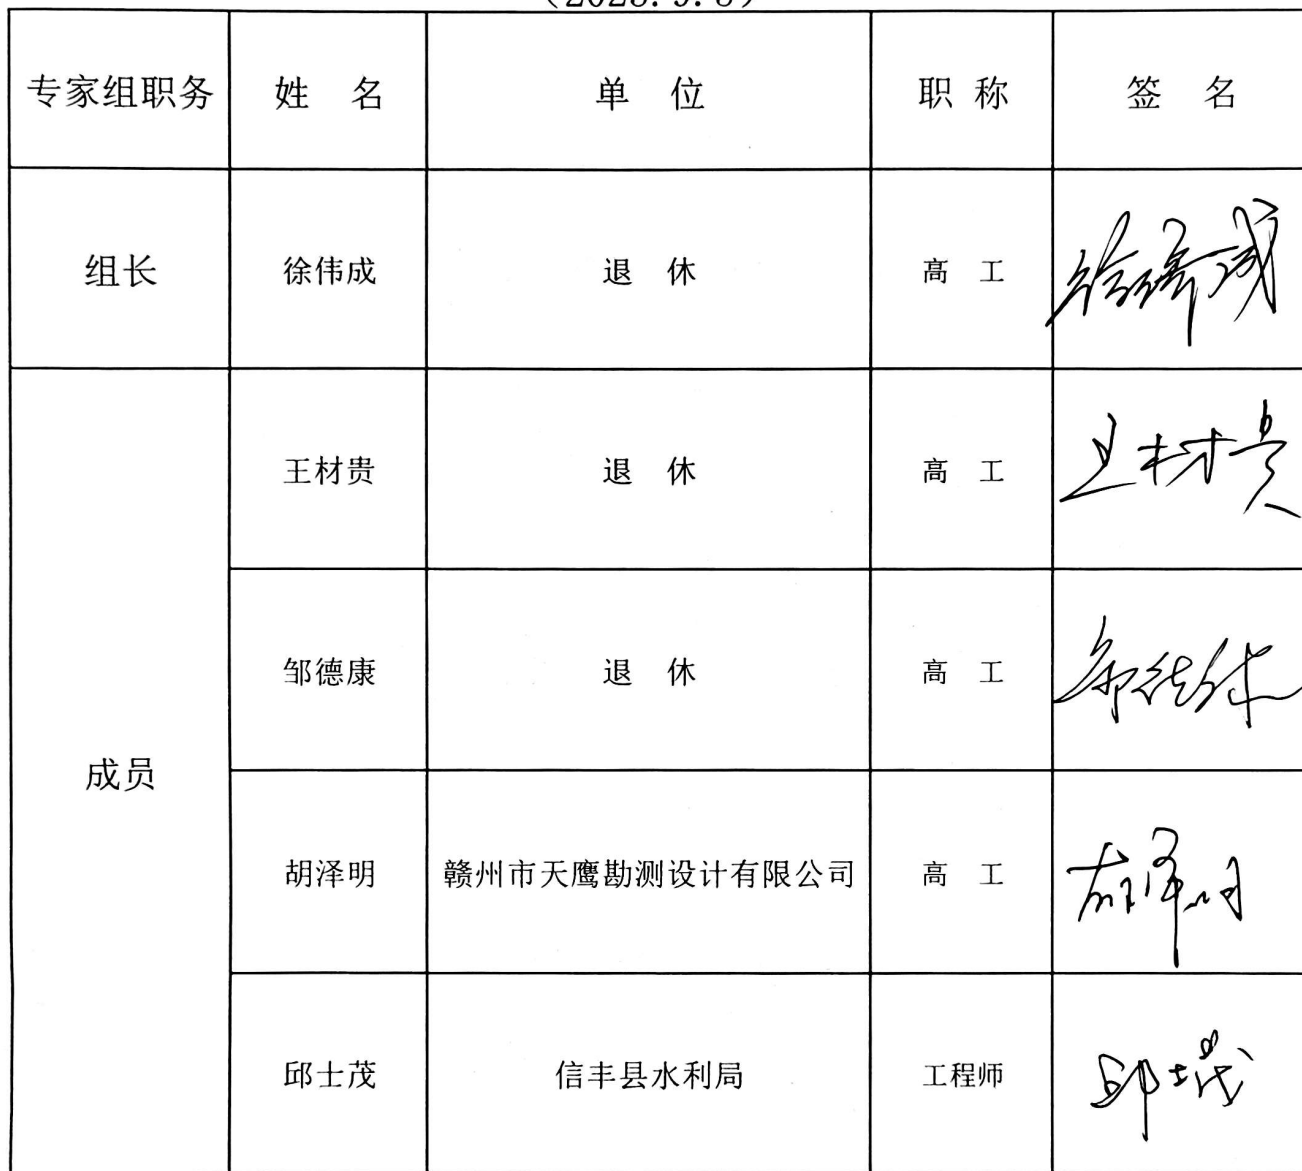 专家组职务 姓 名 单 位 职 称 签 名
组长 徐伟成 退 休 高 工 徐伟成
王材贵 退 休 高 工 王材贵
邹德康 退 休 高 工
成员
胡泽明 赣州市天鹰勘测设计有限公司 高 工 胡泽明
邱士茂 信丰县水利局 工程师 邱士茂